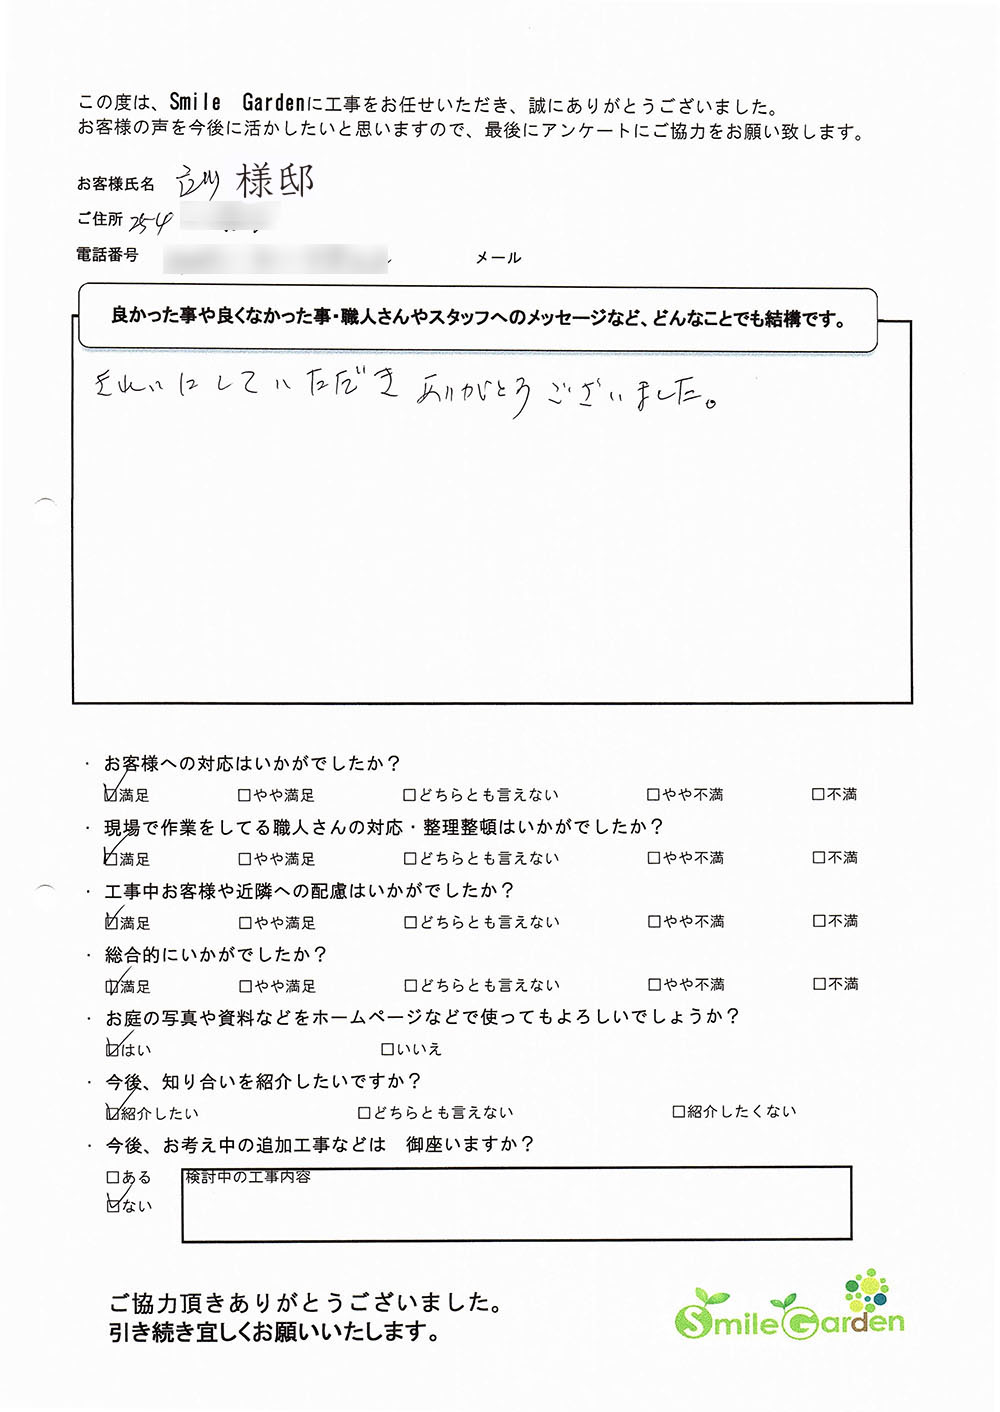 この度は、Smile Gardenに工事をお任せいただき、誠にありがとうございました。
お客様の声を今後に活かしたいと思いますので、最後にアンケートにご協力をお願い致します。
お客様氏名 立川 様邸
ご住所 254
電話番号 メール
良かった事や良くなかった事・職人さんやスタッフへのメッセージなど、どんなことでも結構です。
きれいにしていただき ありがとうございました。
・ お客様への対応はいかがでしたか？
☑満足 □やや満足 □どちらとも言えない □やや不満 □不満
・ 現場で作業をしてる職人さんの対応・整理整頓はいかがでしたか？
☑満足 □やや満足 □どちらとも言えない □やや不満 □不満
・ 工事中お客様や近隣への配慮はいかがでしたか？
☑満足 □やや満足 □どちらとも言えない □やや不満 □不満
・ 総合的にいかがでしたか？
☑満足 □やや満足 □どちらとも言えない □やや不満 □不満
・ お庭の写真や資料などをホームページなどで使ってもよろしいでしょうか？
☑はい □いいえ
・ 今後、知り合いを紹介したいですか？
☑紹介したい □どちらとも言えない □紹介したくない
・ 今後、お考え中の追加工事などは 御座いますか？
□ある 検討中の工事内容
☑ない
ご協力頂きありがとうございました。
引き続き宜しくお願いいたします。
Smile Garden